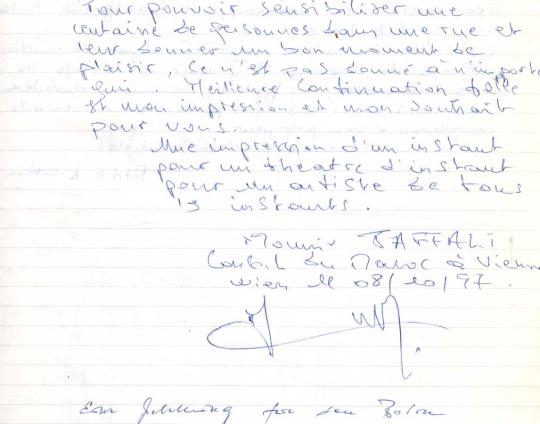 Pour pouvoir sensibiliser une
centaine de personnes dans une rue et
leur donner un bon moment de
plaisir, ce n'est pas donné à n'importe
qui. Meilleure Continuation telle
est mon impression et mon souhait
pour vous.
Une impression d'un instant
pour un théatre d'instant
pour un artiste de tous
les instants.
Mounir
Consul du Maroc à Vienne
Wien le 08/10/97.